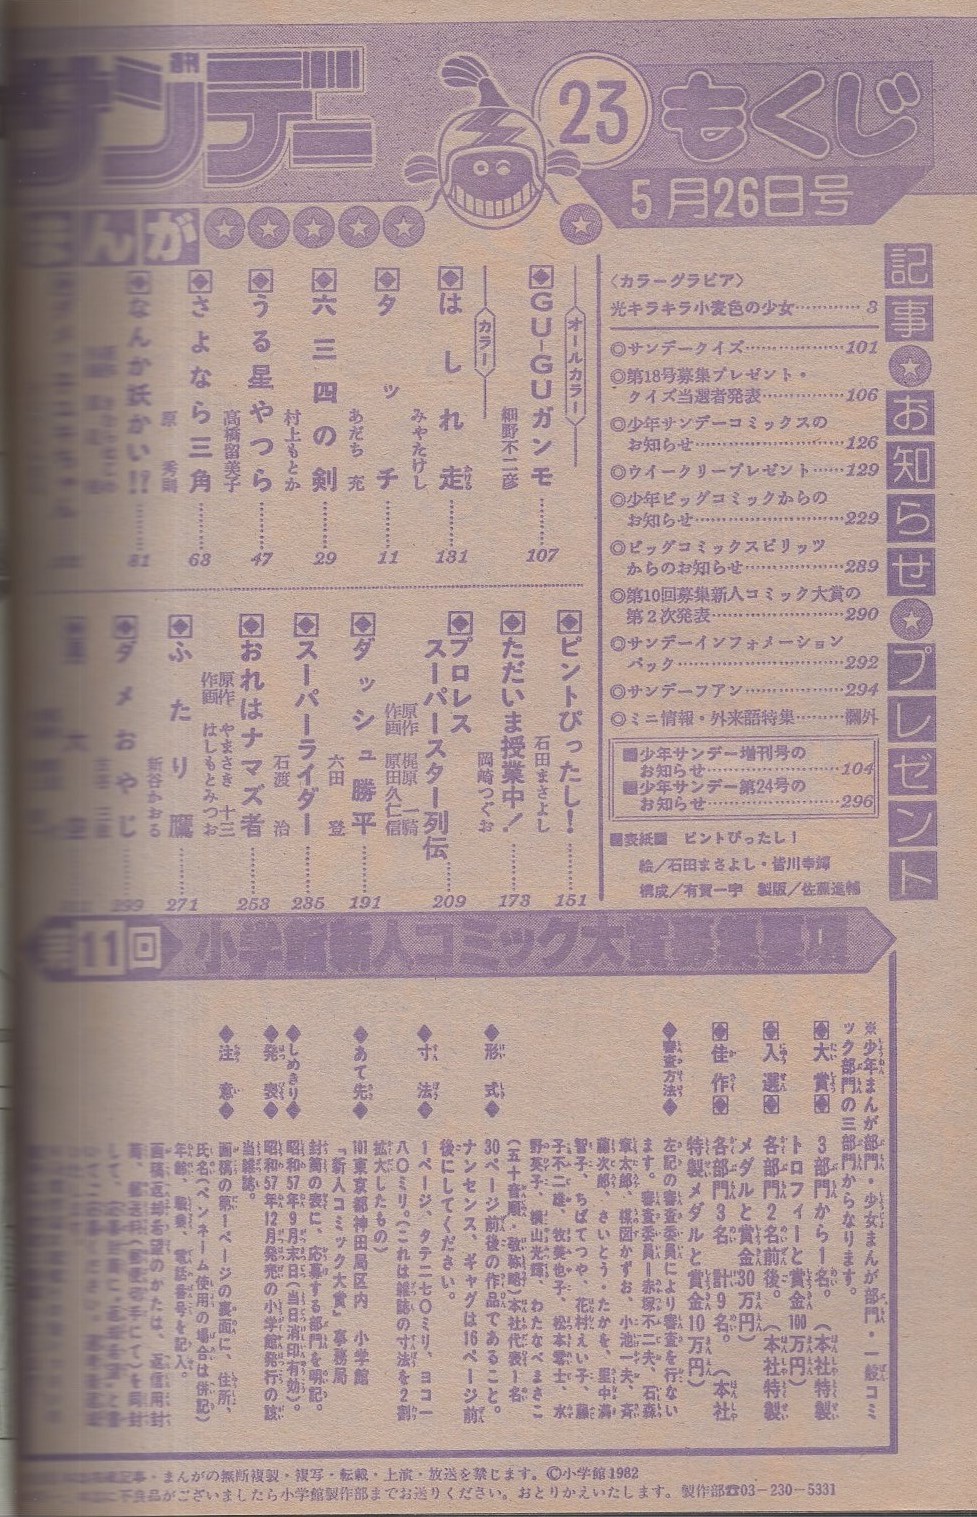 週刊
サンデー
23
もくじ
5月26日号
記事★お知らせ★プレゼント
〈カラーグラビア〉
光キラキラ小麦色の少女…………3
◎サンデークイズ……………101
◎第18号募集プレゼント・
クイズ当選者発表…………106
◎少年サンデーコミックスの
お知らせ…………………126
◎ウイークリープレゼント……129
◎少年ビッグコミックからの
お知らせ…………………229
◎ビッグコミックスピリッツ
からのお知らせ…………289
◎第10回募集新人コミック大賞の
第2次発表………………290
◎サンデーインフォメーション
パック……………………292
◎サンデーフアン……………294
◎ミニ情報・外来語特集……欄外
■少年サンデー増刊号の
お知らせ…………………104
■少年サンデー第24号の
お知らせ…………………296
■表紙■ ピントぴったし!
絵/石田まさよし・皆川幸輝
構成/有賀一宇 製版/佐藤進輔
まんが
オールカラー
GU-GUガンモ 細野不二彦……107
カラー
はしれ走 みやたけし……131
タッチ あだち充……11
六三四の剣 村上もとか……29
うる星やつら 高橋留美子……47
さよなら三角 原秀則……63
なんか妖かい!?……81
ピントぴったし! 石田まさよし……151
ただいま授業中! 岡崎つぐお……173
プロレス
スーパースター列伝 原作 梶原一騎 作画 原田久仁信……209
ダッシュ勝平 六田登……191
スーパーライダー 石渡治……235
おれはナマズ者 原作 やまさき十三 作画 はしもとみつお……253
ふたり鷹 新谷かおる……271
ダメおやじ
第11回 小学館新人コミック大賞募集要項
※少年まんが部門・少女まんが部門・一般コミ
ック部門の三部門からなります。
◆大賞◆ 3部門から1名。(本社特製
トロフィーと賞金100万円)
◆入選◆ 各部門2名前後。(本社特製
メダルと賞金30万円)
◆佳作◆ 各部門3名 計9名。(本社
特製メダルと賞金10万円)
◆審査方法◆ 左記の審査委員により審査を行ない
ます。審査委員=赤塚不二夫、石森
章太郎、楳図かずお、小池一夫、斉
藤次郎、さいとう・たかを、里中満
智子、ちばてつや、花村えい子、藤
子不二雄、牧美也子、松本零士、水
野英子、横山光輝、わたなべまさこ
(五十音順・敬称略)本社代表1名
◆形式◆ 30ページ前後の作品であること。
ナンセンス、ギャグは16ページ前
後にしてください。
◆寸法◆ 1ページ、タテ二七〇ミリ、ヨコ一
八〇ミリ。(これは雑誌の寸法を2割
拡大したもの)
◆あて先◆ 101東京都神田局区内 小学館
「新人コミック大賞」事務局
封筒の表に、応募する部門を明記。
◆しめきり◆ 昭和57年9月末日(当日消印有効)。
◆発表◆ 昭和57年12月発売の小学館発行の該
当雑誌。
◆注意◆ 画稿の第1ページの裏面に、住所、
氏名(ペンネーム使用の場合は併記)
年齢、職業、電話番号を記入。
画稿返却を望のかたは、返信用封
記事・まんがの無断複製・複写・転載・上演・放送を禁じます。©小学館1982
に不良品がございましたら小学館製作部までお送りください。おとりかえいたします。製作部☎03-230-5331